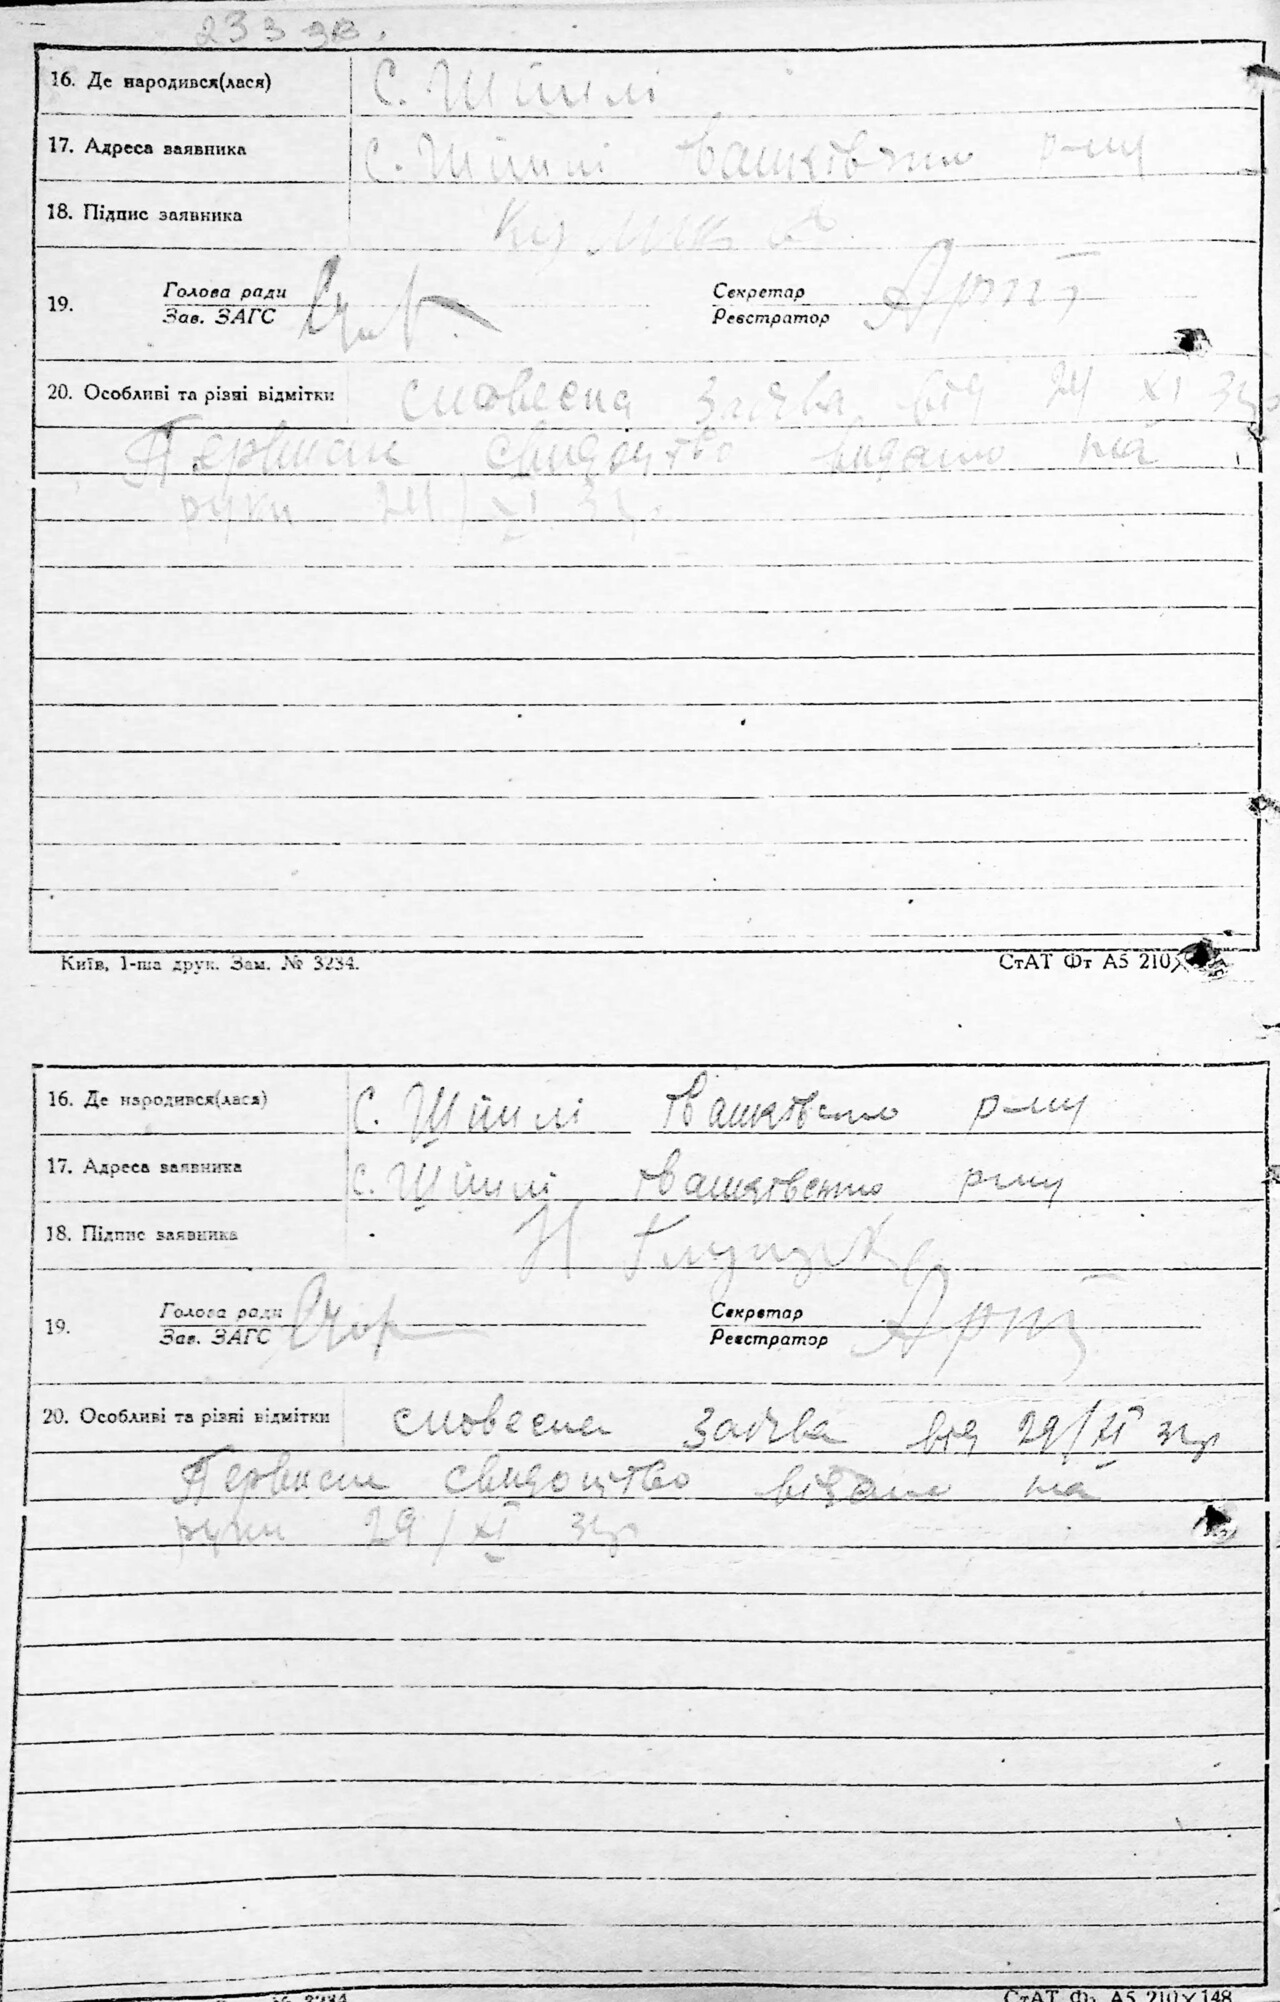 233 зв.
16. Де народився(лася) с. Шпилі
17. Адреса заявника с. Шпилі Іванківського р-ну
18. Підпис заявника
19. Голова ради Секретар
Зав. ЗАГС Реєстратор
20. Особливі та різні відмітки словесна заява від 24 XI 34р
Первисне свидоцтво видано на
руки 24/XI 34.
Київ, 1-ша друк. Зам. № 3234.
СтАТ Фт А5 210
16. Де народився(лася) с. Шпилі Іванківського р-ну
17. Адреса заявника с. Шпилі Іванківського р-ну
18. Підпис заявника Н
19. Голова ради Секретар
Зав. ЗАГС Реєстратор
20. Особливі та різні відмітки словесна заява від 29/XI 34р
Первисне свидоцтво видано на
руки 29/XI 34р
№ 3234
СтАТ Фт А5 210×148